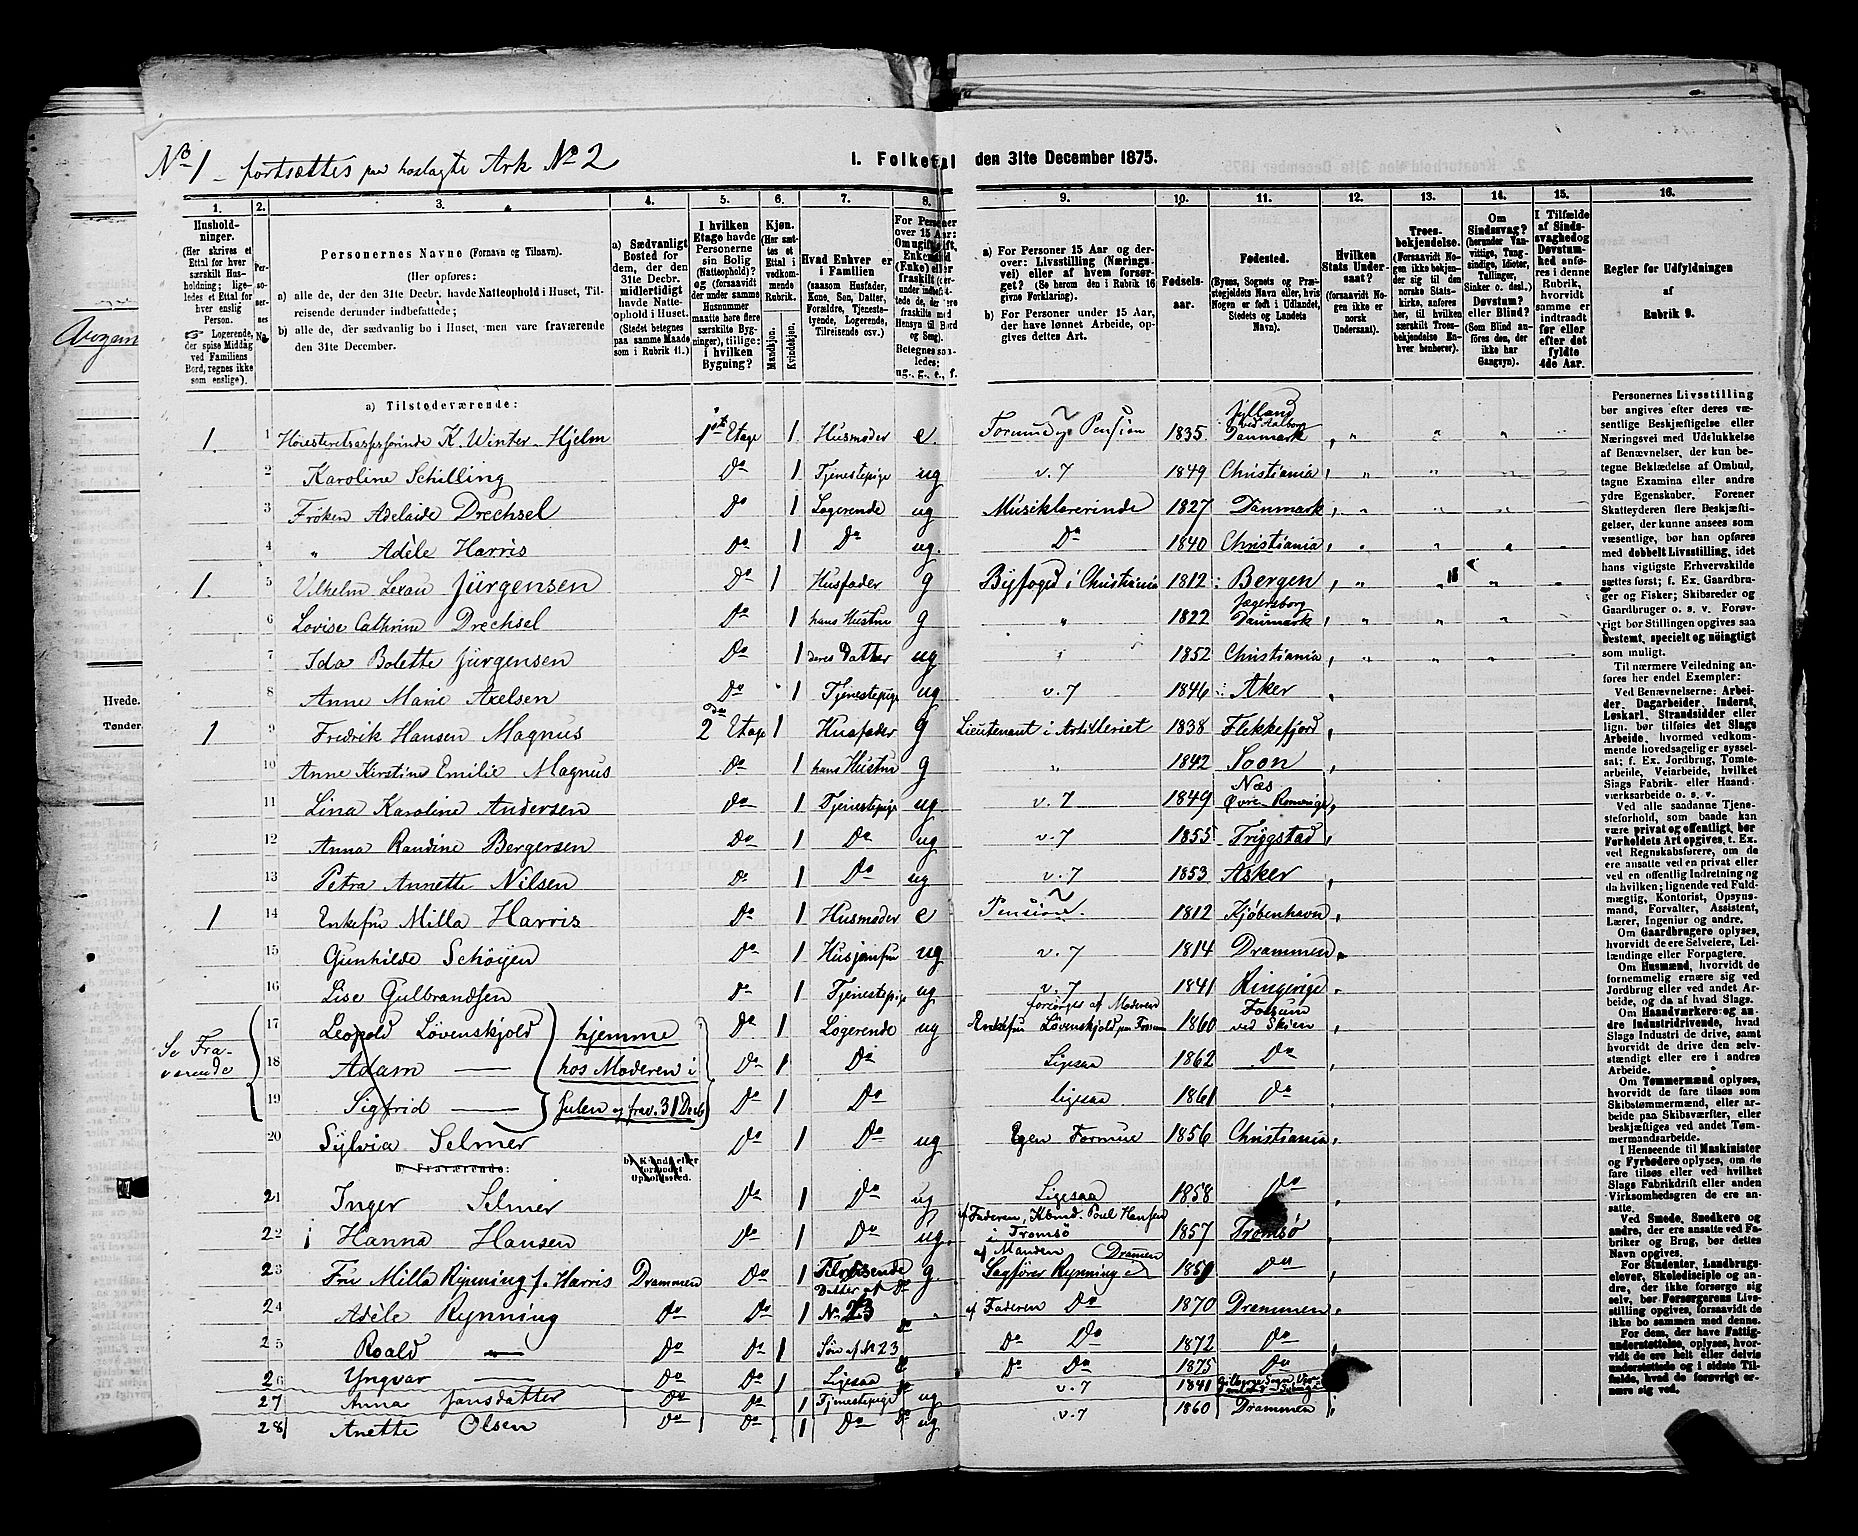 No 1 – fortsættes paa hoslagte Ark No 2
I. Folketal den 31te December 1875.
1. 2. 3. 4. 5. 6. 7. 8. 9. 10. 11. 12. 13. 14. 15. 16.
Hushold-
ninger.
(Her skrives et
Ettal for hver
særskilt Hus-
holdning; lige-
ledes et Ettal for
hver enslig
Person.
Logerende,
der spise Middag
ved Familiens
Bord, regnes ikke
som enslige).
Personernes Navne (Fornavn og Tilnavn).
(Her opføres:
a) alle de, der den 31te Decbr. havde Natteophold i Huset, Til-
reisende derunder indbefattede;
b) alle de, der sædvanlig bo i Huset, men vare fraværende
den 31te December.
a) Sædvanligt
Bosted for
dem, der den
31te Decbr.
midlertidigt
havde Natte-
ophold i Huset.
(Stedet betegnes
paa samme Maade
som i Rubrik 11.)
I hvilken
Etage havde
Personerne
sin Bolig
(Natteophold)?
og (forsaavidt
der under samme
Husnummer
maatte høre flere
særskilte Byg-
ninger), tillige:
i hvilken
Bygning?
Kjøn.
(Her sæt-
tes et
Ettal i
vedkom-
mende
Rubrik.
Mandkjøn.
Kvindekjøn.
Hvad Enhver er
i Familien
(saasom Husfader,
Kone, Søn, Datter,
Forældre, Tjeneste-
tyende, Logerende,
Tilreisende osv.)
a) For Personer 15 Aar og der-
over: Livsstilling (Nærings-
vei) eller af hvem forsør-
get? (Se herom den i Rubrik 16
givne Forklaring).
b) For Personer under 15 Aar,
der have lønnet Arbeide, op-
gives dettes Art.
Fødsels-
aar.
Fødested.
(Byens, Sognets og Præ-
stegjeldets Navn eller, hvis
Nogen er født i Udlandet,
Stedets og Landets
Navn).
Hvilken
Stats Under-
saat?
(forsaavidt No-
gen ikke er
norsk
Undersaat).
Troes-
bekjendelse.
(Forsaavidt No-
gen ikke bekjen-
der sig til den
norske Stats-
kirke, anføres
her, til hvilken
særskilt Troes-
bekjendelse En-
hver henhører).
Om
Sindssvag?
(herunder Van-
vittige, Tung-
sindige, Idioter,
Tullinger,
Sinker o. desl.)
Døvstum?
eller Blind?
(Som Blind an-
føres den, der
ikke har
Gangsyn).
I Tilfælde
af Sinds-
svaghed og
Døvstum-
hed anfø-
res i denne
Rubrik,
hvorvidt
samme er
indtraadt
før eller
efter det
fyldte
4de Aar.
Regler for Udfyldningen
af
Rubrik 9.
a) Tilstedeværende:
1 1 K. Winter-Hjelm 1ste Etage 1 Husmoder e Pension 1835 Jylland ved Aalborg Danmark
2 Karoline Schilling Do 1 Tjenestepige ug v. 7 1849 Christiania
3 Frøken Adelaide Drechsel Do 1 Logerende ug Musiklærerinde 1827 Danmark
4 " Adèle Harris Do 1 Do ug. Do 1840 Christiania
1 5 Vilhelm Lexau Jürgensen Do 1 Husfader g Byfoged i Christiania 1812 Bergen
6 Lovise Cathrine Drechsel Do 1 hans Hustru g " 1822 Jægersborg Danmark
7 Ida Bolette Jürgensen Do 1 deres Datter ug 1852 Christiania
8 Anne Marie Axelsen Do 1 Tjenestepige ug v. 7 1846 Aker
1 9 Fredrik Hansen Magnus 2den Etage 1 Husfader g Lieutenant i Artilleriet 1838 Flekkefjord
10 Anne Kirstine Emilie Magnus Do 1 hans Hustru g " 1842 Soon
11 Lina Karoline Andersen Do 1 Tjenestepige ug v. 7 1849 Næs Øvre Romerige
12 Anna Randine Bergersen Do 1 Do ug v. 7 1855 Trøgstad
13 Petra Annette Nilsen Do 1 Do ug v. 7 1853 Asker
1 14 Enkefru Milla Harris Do 1 Husmoder e Pension. 1812 Kjøbenhavn
15 Gunhilde Schøyen Do 1 Husjomfru ug v. 7 1814 Drammen
16 Lise Gulbrandsen Do 1 Tjenestepige ug v. 7 1841 Ringerige
Se Fra-
værende
17 Leopold Løvenskjold hjemme Do 1 Logerende ug forsørges af Moderen Enkefru Løvenskjold paa Fossum 1860 Fossum ved Skien
18 Adam — hos Moderen i Do 1 Do Ligesaa 1862 Do
19 Sigfrid — Julen og frav. 31 Decb Do 1 Do Ligesaa 1861 Do
20 Sylvia Selmer Do 1 Do ug Egen Formue 1856 Christiania
b) Fraværende:
b) Kjendt eller
formodet
Opholdssted.
21 Inger Selmer Do 1 Do ug Ligesaa 1858 Do
22 Hanna Hansen Do 1 Do ug. af Faderen, Kbmd. Poul Hansen i Tromsø 1857 Tromsø
23 Fru Milla Rynning f. Harris Drammen Do 1 Tilreisende g. af Manden Sagfører Rynning i Dramen Do
24 Adèle Rynning Do Do 1 Datter af No 23 af Faderen Do 1870 Drammen
25 Roald — Do Do 1 Søn af No 23 Do Do 1872 Do
26 Yngvar — Do Do 1 Ligesaa Do Do 1875 Do
27 Anna Jansdatter Do Do 1 Tjenestepige ug v. 7 1841
28 Anette Olsen Do Do 1 Do ug v. 7 1860 Drammen
Personernes Livsstilling
bør angives efter deres væ-
sentlige Beskjæftigelse eller
Næringsvei med Udelukkelse
af Benævnelser, der kun be-
tegne Beklædelse af Ombud,
tagne Examina eller andre
ydre Egenskaber. Forener
Skatteyderen flere Beskjæfti-
gelser, der kunne ansees som
væsentlige, bør han opføres
med dobbelt Livsstilling, idet
hans vigtigste Erhvervskilde
sættes først; f. Ex. Gaardbru-
ger og Fisker; Skibsreder og
Gaardbruger o. s. v. Forøv-
rigt bør Stillingen opgives saa
bestemt, specielt og nøiagtigt
som muligt.
Til nærmere Veiledning an-
føres her endel Exempler:
Ved Benævnelserne: Arbei-
der, Dagarbeider, Inderst,
Løskarl, Strandsidder eller
lign. bør tilføies det Slags
Arbeide, hvormed vedkom-
mende hovedsagelig er syssel-
sat; f. Ex. Jordbrug, Tomte-
arbeide, Veiarbeide, hvilket
Slags Fabrik- eller Haand-
værksarbeide o. s. v.
Ved alle saadanne Tjene-
steforhold, som baade kan
være privat og offentlig, bør
Forholdets Art opgives, t. Ex.
ved Regnskabsførere, om de
ere ansatte ved en privat eller
ved en offentlig Indretning og
da hvilken; lignende ved Fuld-
mægtig, Kontorist, Opsyns-
mand, Forvalter, Assistent,
Lærer, Ingeniør og andre.
Om Gaardbrugere oplyses,
hvorvidt de ere Selveiere, Lei-
lændinge eller Forpagtere.
Om Husmænd, hvorvidt de
fornemmelig ernære sig ved
Jordbrug eller ved andet Ar-
beide, og da af hvad Slags.
Om Haandværkere og an-
dre Industridrivende, hvad
Slags Industri de drive, samt
hvorvidt de drive den selv-
stændigt eller ere i andres
Arbeide.
Om Tømmermænd oplyses,
hvorvidt de fare tilsøs som
Skibstømmermænd, eller ar-
beide paa Skibsværfter, eller
beskjæftiges ved andet Tøm-
mermandsarbeide.
I Henseende til Maskinister
og Fyrbødere oplyses, om de
fare tilsøs eller ved hvilket
Slags Fabrikdrift eller anden
Virksomhedsgren de ere an-
satte.
Ved Smede, Snedkere og
andre, der ere ansatte ved Fa-
briker og Brug, bør dettes
Navn opgives.
For Studenter, Landbrugs-
elever, Skoledisciple og an-
dre, der ikke forsørge sig
selv, bør Forsørgerens Livs-
stilling opgives, forsaavidt de
ikke bo sammen med denne.
For dem, der have Fattig-
understøttelse, oplyses, hvor-
vidt de ere helt eller delvis
understøttede og i sidste Til-
fælde, hvad de forøvrigt er-
nære sig ved.
Hvede.
Tønder.